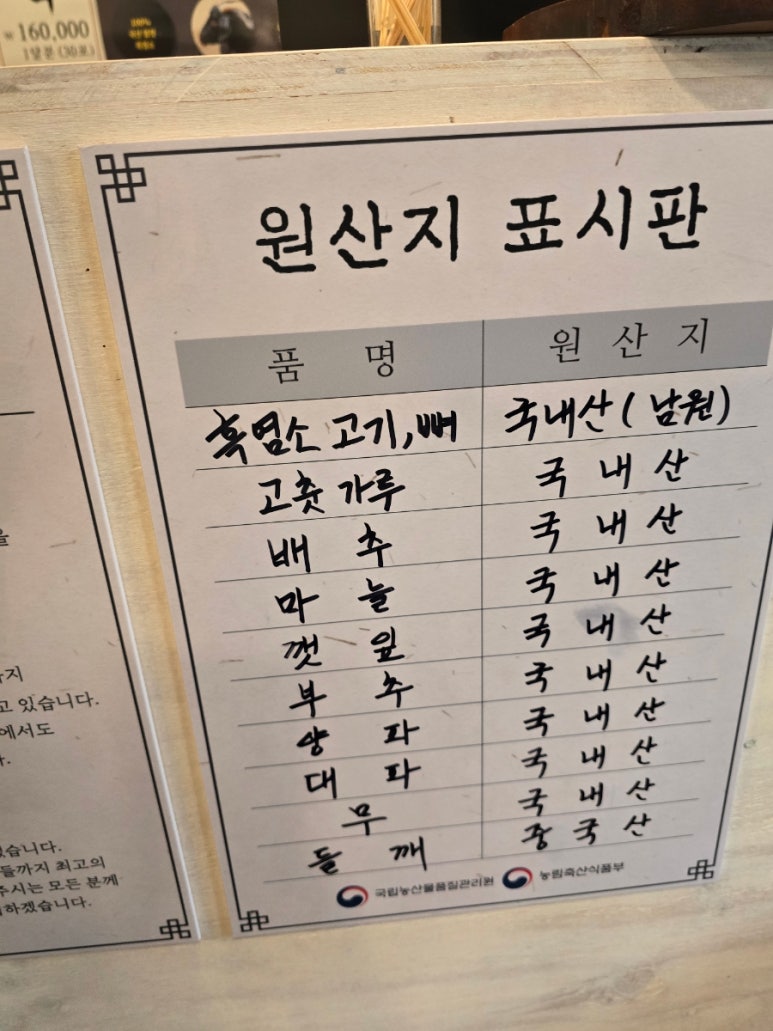 ₩ 160,000
1달분 (30포)
100%
원산지 표시판
품 명 원 산 지
흑염소 고기, 뼈 국내산 ( 남원 )
고춧 가루 국 내 산
배 추 국 내 산
마 늘 국 내 산
깻 잎 국 내 산
부 추 국 내 산
양 파 국 내 산
대 파 국 내 산
무 국 내 산
들 깨 중 국 산
국립농산물품질관리원 농림축산식품부
을
까지
고 있습니다.
에서도
다.
있습니다.
들까지 최고의
주시는 모든 분께
하겠습니다.